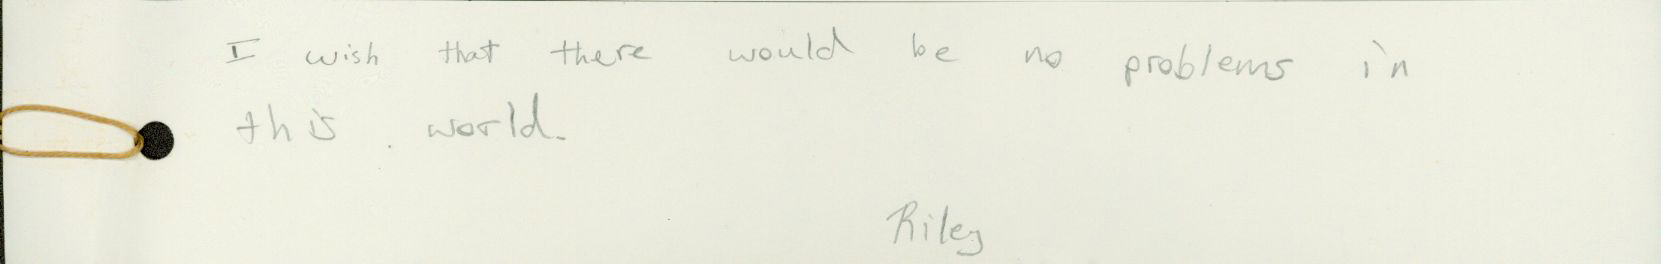 I wish that there would be no problems in
this . world.
Riley